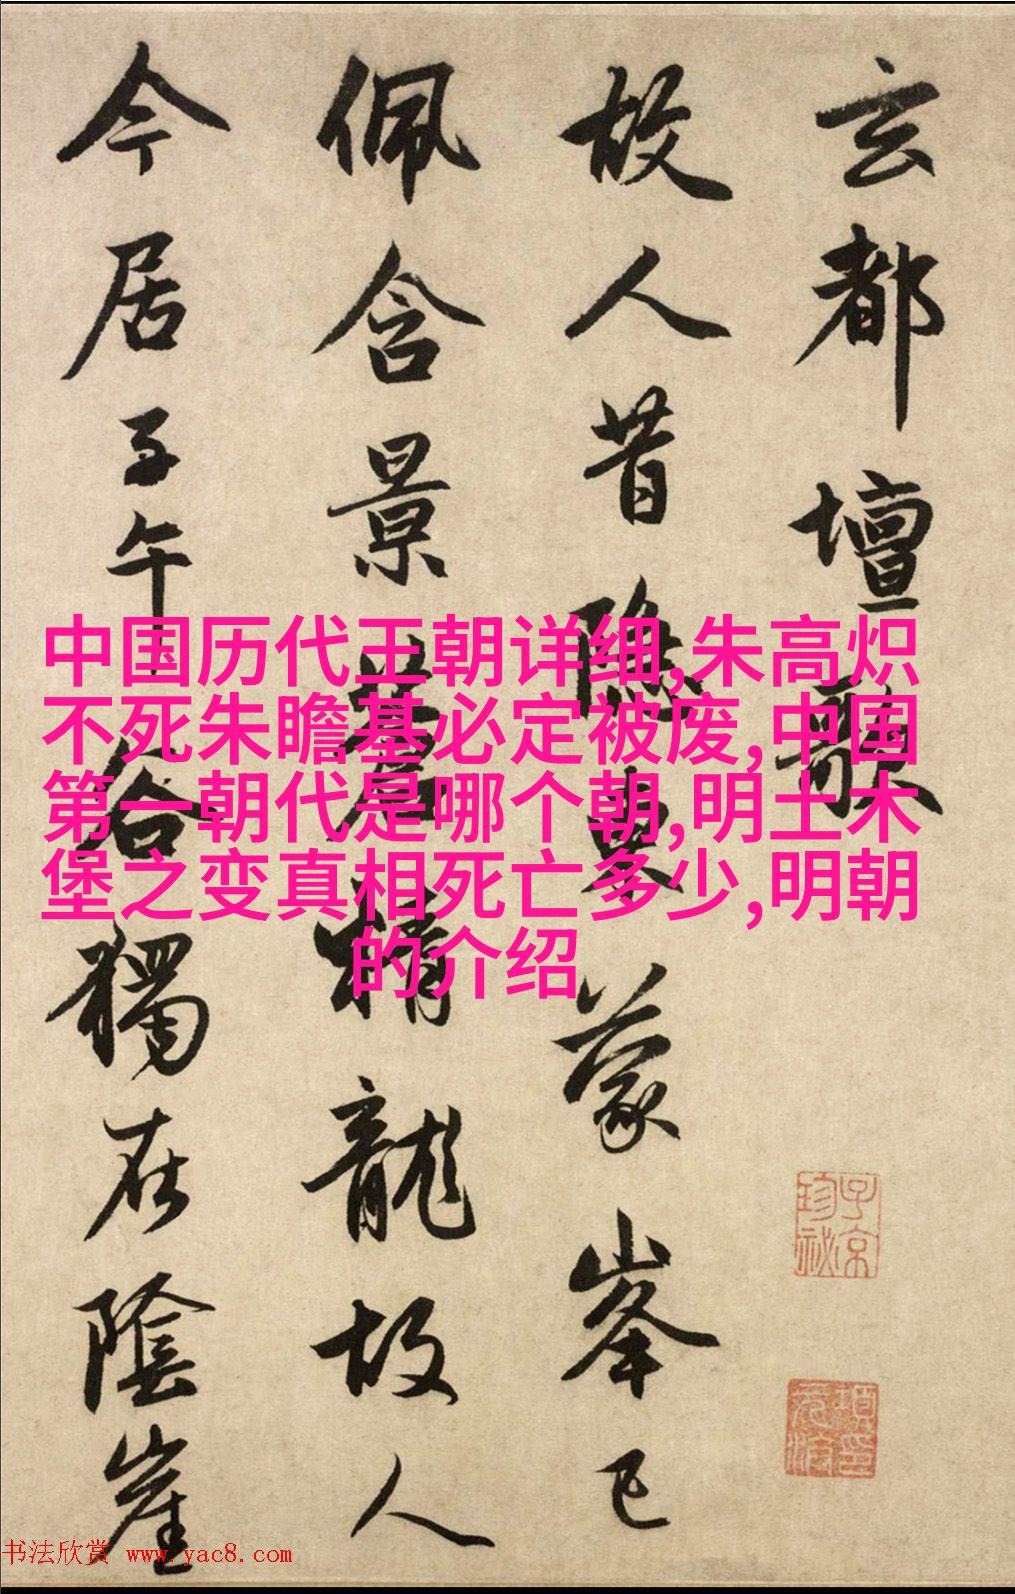 玄都壇歌
故人昔隱東蒙峯已
佩含景蒼精龍故人
今居子午谷獨在陰崖
中国历代王朝详细,朱高炽
不死朱瞻基必定被废,中国
第一朝代是哪个朝,明土木
堡之变真相死亡多少,明朝
的介绍
子京
珍祕
书法欣赏 www.yac8.com